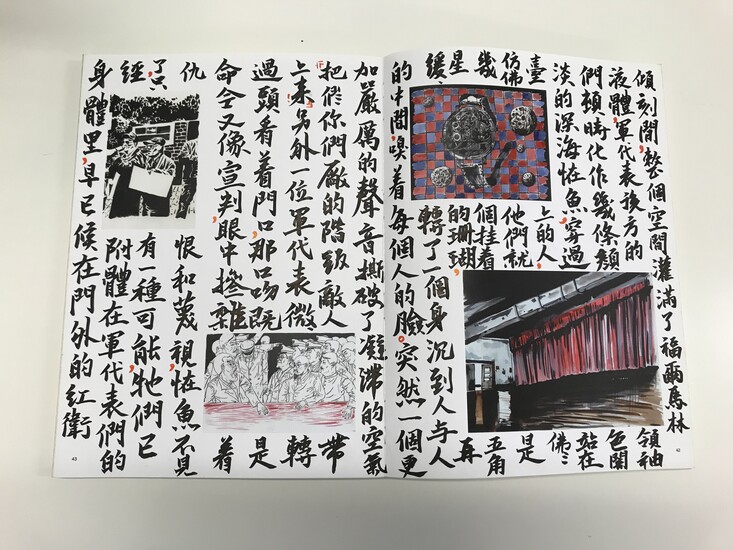 傾刻間,整個空間灌滿了福爾馬林
液體,軍代表孩方的領袖
們頓時化作幾條顏色闌
淡的深海怪魚,穿過站在
臺上的人,佛
仿佛他們就是
幾個挂着五角
星的珊瑚,再
緩轉了一個身沉到人与人
的中間,嗅着每個人的臉。突然一個更
42
加嚴厲的聲音撕破了凝滯的空氣
把你們廠的階級敵人帶
上來!另外一位軍代表微轉
過頭看着門口,那口吻既是
命令又像宣判,眼中摻雜着
仇恨和蔑視,怪魚不見
了,有一種可能,牠們已
經附體在軍代表們的
身體里,早已候在門外的紅衛
43